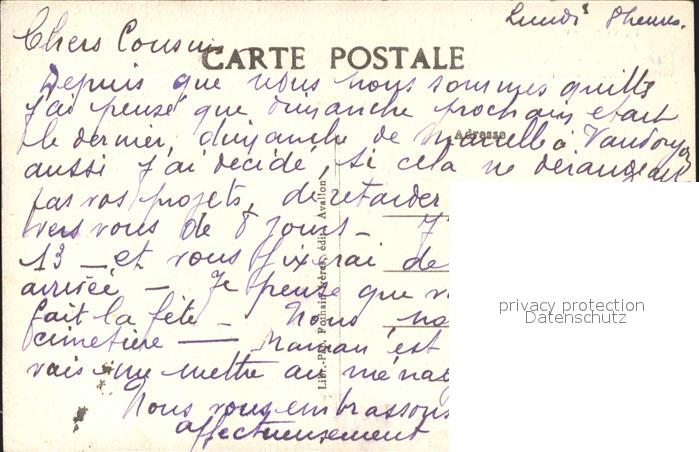 Lundi 8 heures.
Chers Cousins
CARTE POSTALE
Depuis que nous nous sommes quittés
j'ai pensé que dimanche prochain était
le dernier dimanche de Marcelle à
Adresse
aussi j'ai décidé, si cela ne dérangeait
pas vos projets, de retarder
vers vous de 8 jours - J
13 - et vous fixerai de
arrivée - Je pense que v
fait la fête - Nous
cimetière - Maman est
vais me mettre au ménag
Nous vous embrassons
affectueusement
Libr.-Pap. Pothain Frères, édit. Avallon
privacy protection
Datenschutz